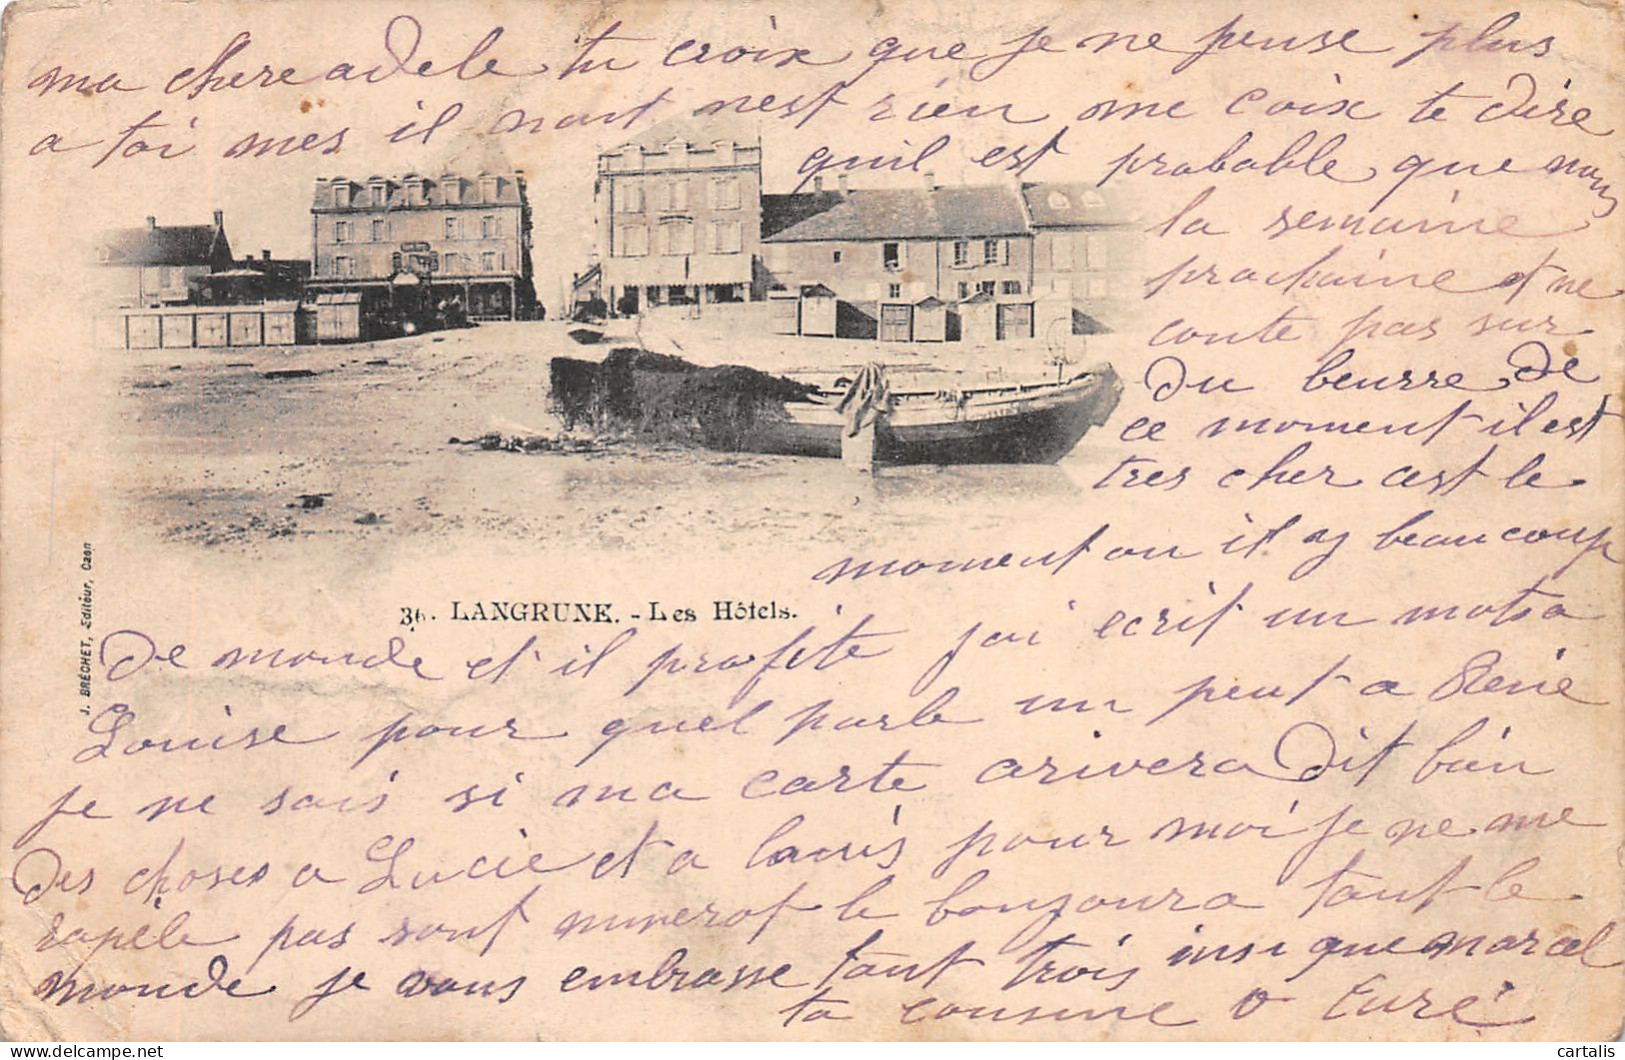 ma chere adele tu croix que je ne pense plus
a toi mes il nont nest rien me coix te dire
quil est probable que nous
la semaine
prochaine et ne
conte pas sur
du beurre de
ce moment il est
tres cher cest le
moment ou il y beaucoup
36. LANGRUNE. - Les Hôtels.
J. BRÉCHET, Editeur, Caen
de monde et il profite jai ecrit un mot a
Louise pour quel parle un peut a Renie
je ne sais si ma carte arivera dit bien
des choses a Lucie et a louis pour moi je ne me
rapèle pas sont numerot le bonjoura tout le
monde je vous embrasse tout trois insi que marcel
ta cousine
cartalis
delcampe.net